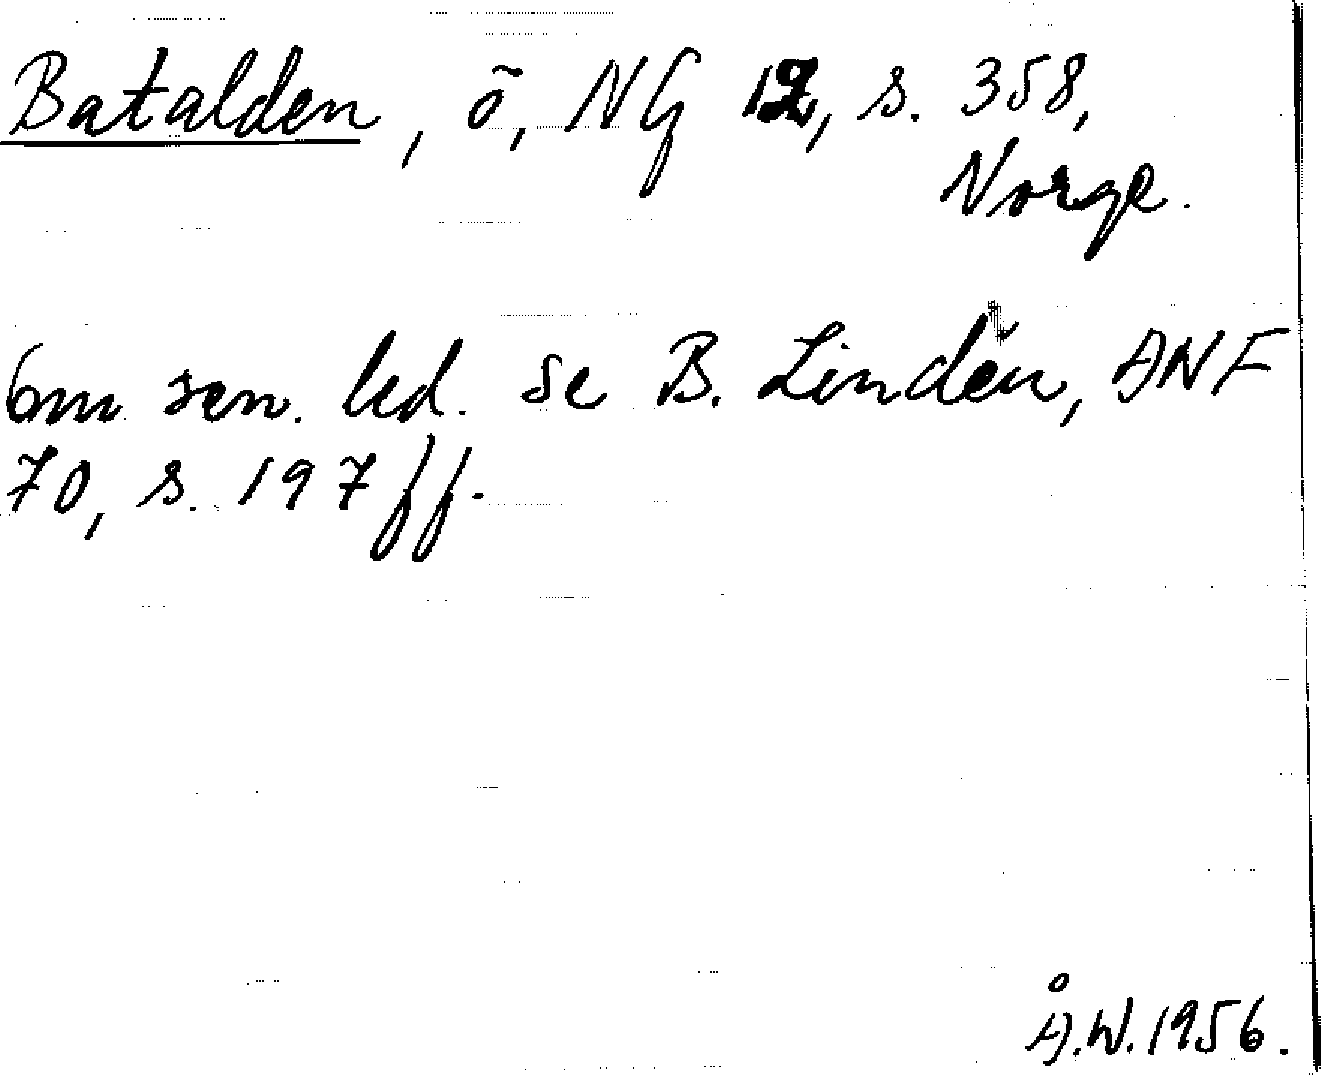 Batalden, ö, NG 12, s. 358,
Norge.
Om sen. led. se B. Lindén, ANF
70, s. 197 ff.
Å.W. 1956.